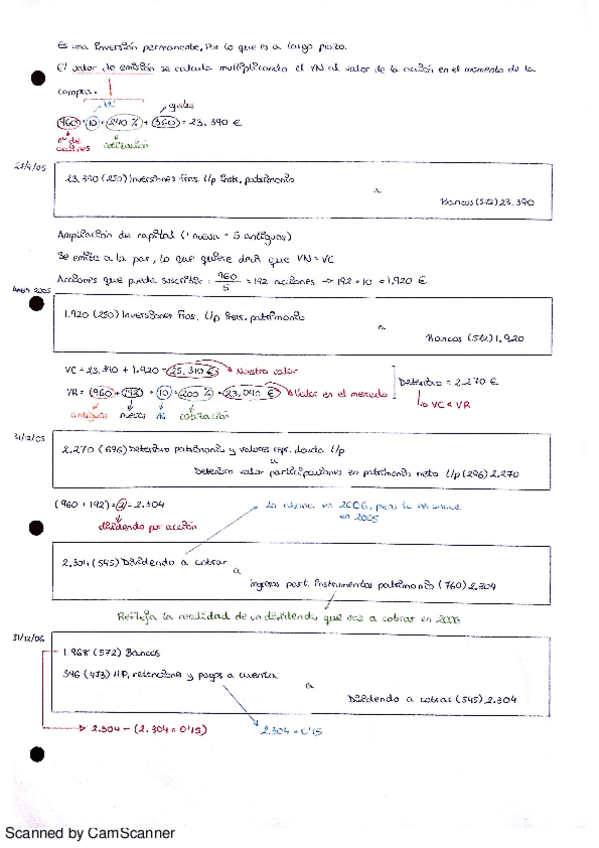 Es una inversión permanente, por lo que es a largo plazo.
El valor de emisión se calcula multiplicando el VN al valor de la acción en el momento de la
compra.
VN
gastos
(960 · 10 · 240 %) + 360 = 23.390 €
nº de acciones
cotización
23.390 (250) Inversiones fras. l/p Instr. patrimonio
a
Bancos (572) 23.390
Ampliación de capital (1 nueva - 5 antiguas)
Se emite a la par, lo que quiere decir que VN = VC
Acciones que puede suscribir: 960/5 = 192 acciones → 192 · 10 = 1.920 €
1.920 (250) Inversiones fras. l/p Instr. patrimonio
a
Bancos (572) 1.920
VC = 23.390 + 1.920 = 25.310 € → Nuestro valor
VR = (960 + 192) · 10 · 200 % = 23.040 € → Valor en el mercado
Deterioro = 2.270 €
↳ VC < VR
antiguas nuevas VN cotización
31/12/05
2.270 (696) Deterioro patrimonio y valores repr. deuda l/p
a
Deterioro valor participaciones en patrimonio neto l/p (296) 2.270
(960 + 192) · 2 = 2.304
dividendo por acción
en 2005
2.304 (545) Dividendo a cobrar
a
Ingresos part. instrumentos patrimonio (760) 2.304
Refleja la realidad de un dividendo que vas a cobrar en 2006
31/12/06
1.968 (572) Bancos
346 (473) HP, retenciones y pagos a cuenta
a
Dividendo a cobrar (545) 2.304
2.304 - (2.304 · 0'15)
2.304 · 0'15
Scanned by CamScanner